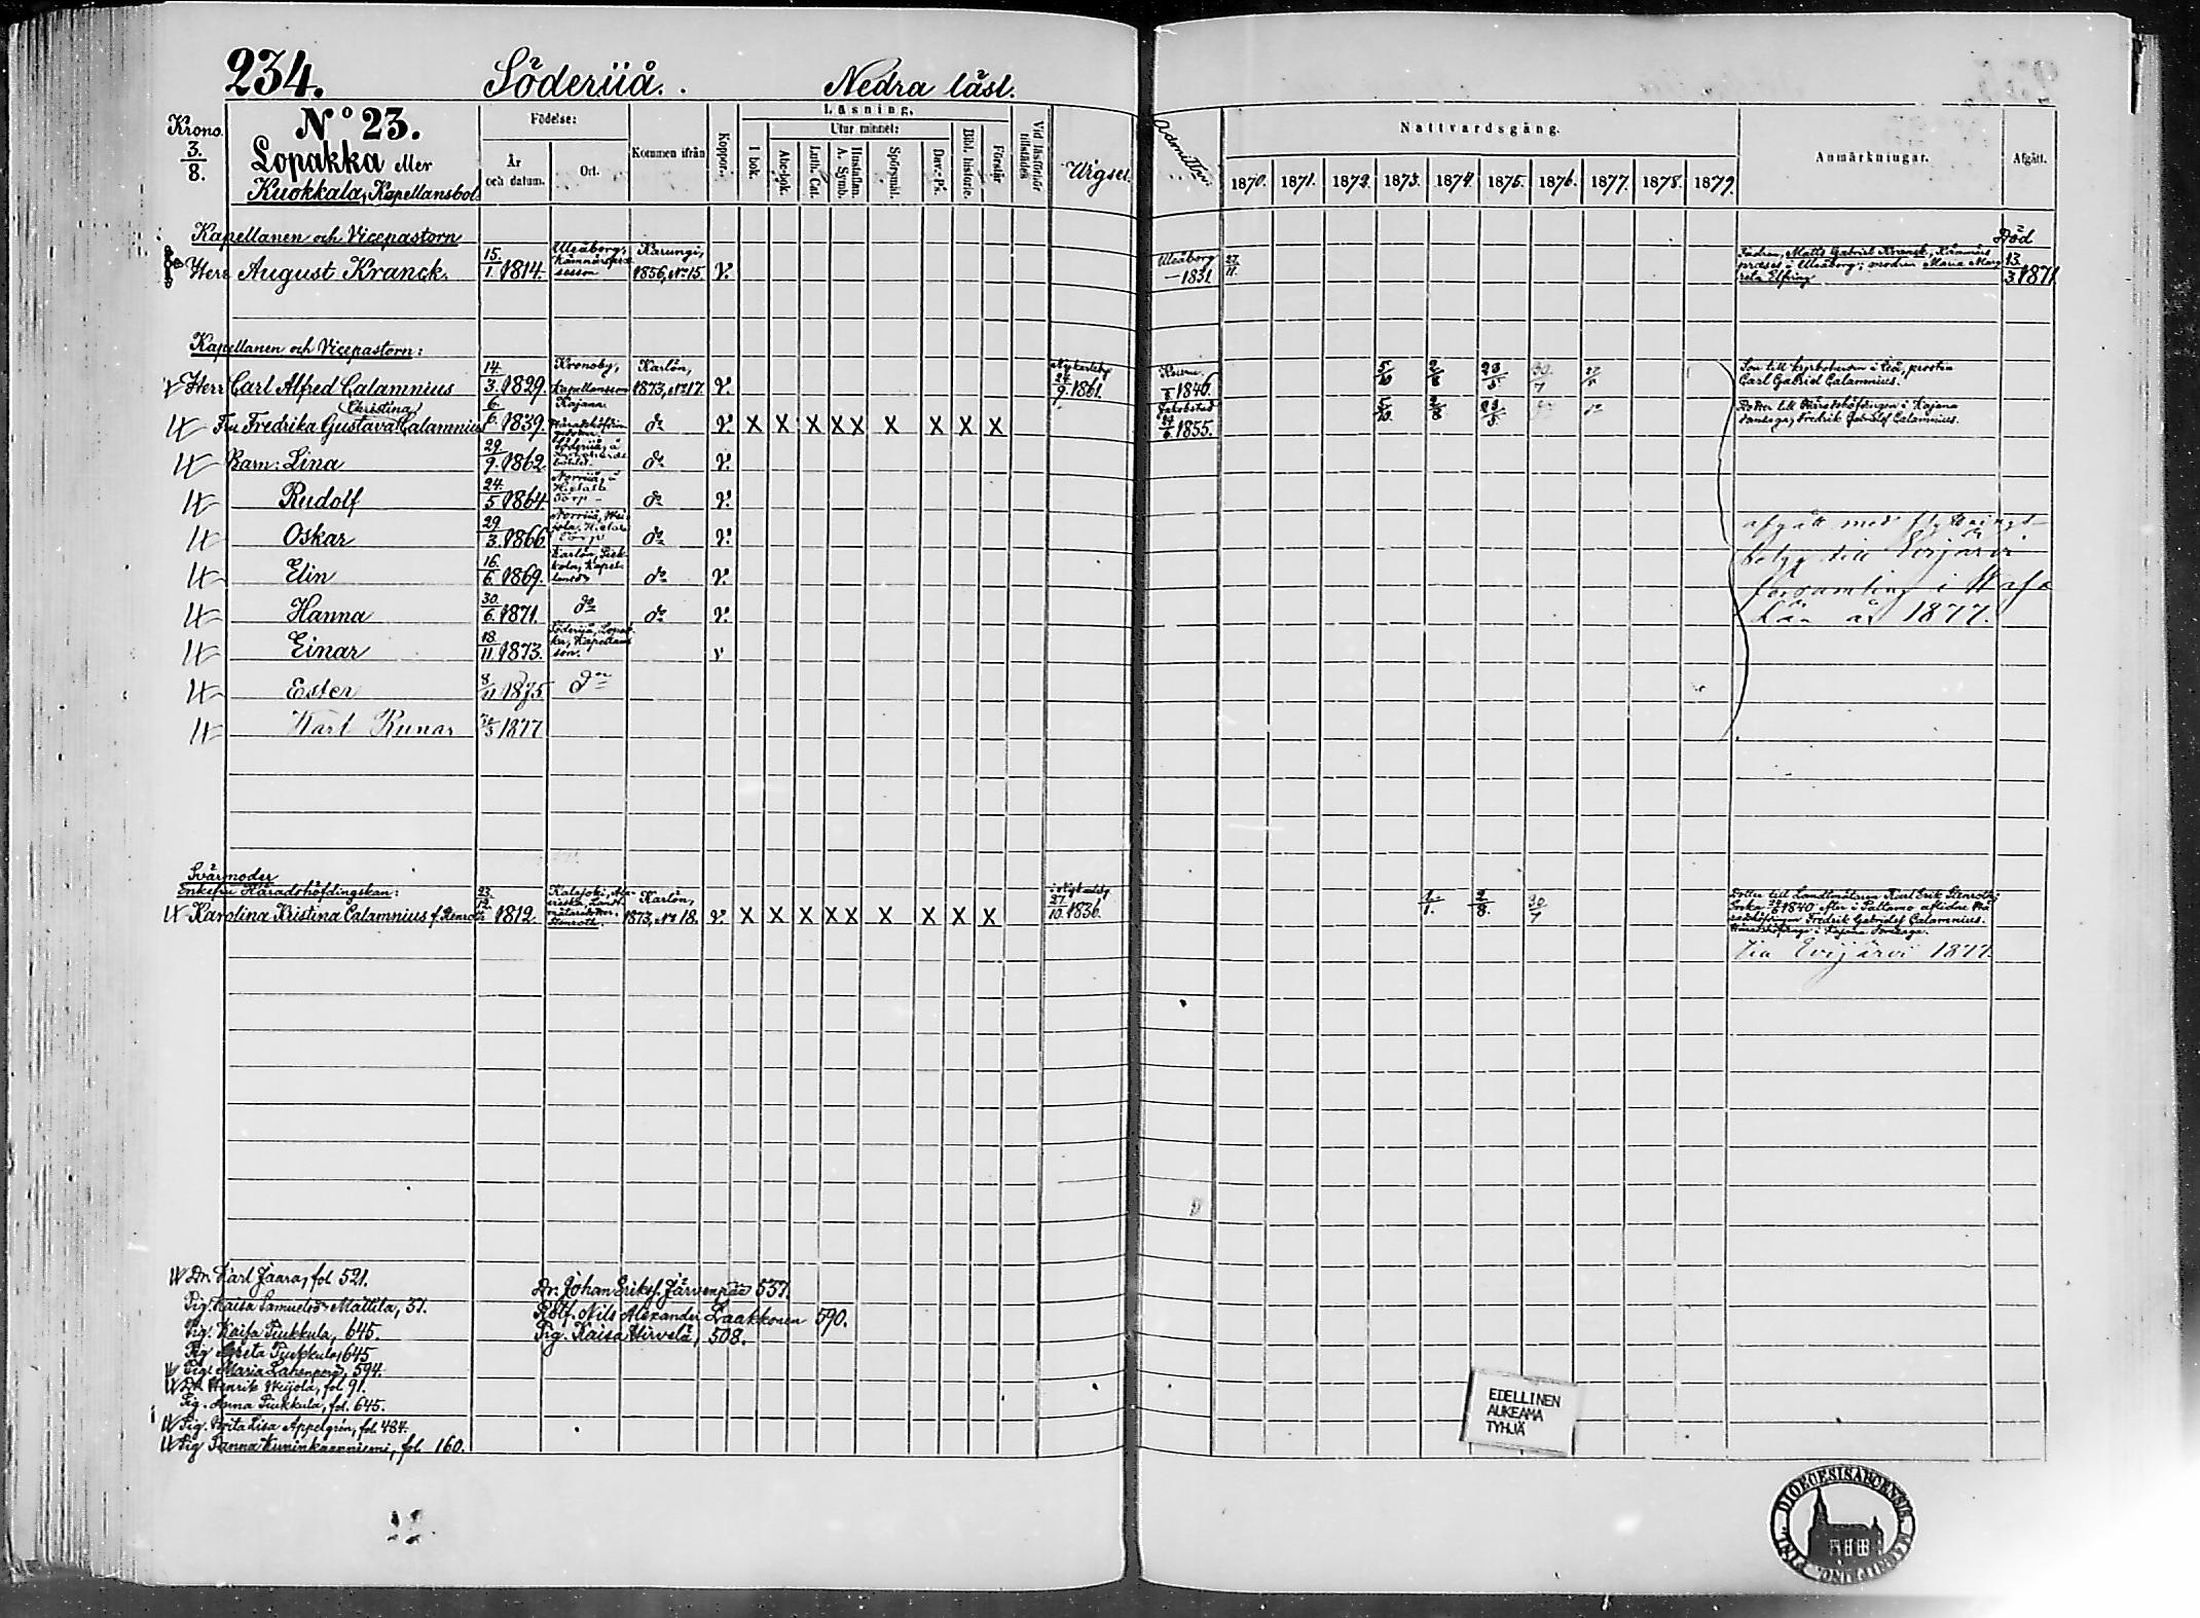 234. Söderiiå. Nedra läsl.
Krono. 3./8.
No 23.
Lopakka eller
Kuokkala, Kapellansbol.
Födelse:
År och datum.
Ort.
Kommen ifrån
Koppor.
Läsning.
I bok.
Utur minnet:
Abc-bok.
Luth. Cat.
Hustaflan. A. Symb.
Spörsmål.
Dav. Ps.
Bibl. historie.
Förstår
Vid läsförhör tillstädes
Wigsel.
Admitter.
Nattvardsgång.
1870. 1871. 1872. 1873. 1874. 1875. 1876. 1877. 1878. 1879.
Anmärkningar.
Afgått.
Kapellanen och Vicepastorn
Herr August Kranck. 15./1. 1814. Uleåborg, Karungi, 1856, No 15. v. Uleåborg — 1831. 27./11. Fadren, Matts Gabriel Kranck, i Uleåborg; modren Maria Elfving Död 13./3. 1871
Kapellanen och Vicepastorn:
Herr Carl Alfred Calamnius 14./3. 1829. Kronoby, Kapellansson Karlön, 1873, No 17. v. 9. 1861. 1846. 5/10 2/8 23/5 30/7 Son till kyrkoherden i Iiå, prosten Carl Gabriel Calamnius.
Fru Fredrika Gustava Christina Calamnius 6./6. 1839. Kajana do v. X X X X X X X X X Jakobstad 1855. 5/10 2/8 23/5 Dotter till Häradshöfdingen i Kajana domsaga, Fredrik Gabrielsf Calamnius.
Barn: Lina 29./9. 1862. Söderiiå, do v.
Rudolf 24./5. 1864. Norriiå, Hietala Torp do v.
Oskar 29./3. 1866. Norriiå, Torp do v.
Elin 16./6. 1869. Karlön, do v.
Hanna 30./6. 1871. do do v.
Einar 18./11. 1873. Söderiiå, Kapellans son. v
Ester 8/11 1875 do
Karl Runar 1877
afgått med flyttnings-
betyg till Evijärvi
församling i Wasa
Län år 1877.
Svärmoder
Enkefru Häradshöfdingskan:
Karolina Kristina Calamnius f. Stenroth 23./12. 1812. Kalajoki, Stenroth. Karlön, 1873, No 18. v. X X X X X X X X X 27./10. 1836. 1./1. 2/8. 30/7 Dotter till Landtmätaren Karl Erik Stenroth; Enka 1840 efter i Paltamo aflidne Häradshöfdingen Fredrik Gabrielsf Calamnius. Häradshöfdinge i Kajana Domsaga.
Till Evijärvi 1877.
Dr. Karl Jaara, fol 521.
Pig. Kaisa Samuelsdr Mattila, 37.
Pig. Kaisa Piukkula, 645.
Pig Greta Piukkula, 645
Pig. Maria Lahenperä, 594.
Dr. Henrik Weijola, fol 91.
Pig. Anna Piukkula, fol. 645.
Pig. Brita Lisa Appelgrén, fol. 484.
Pig Sanna Kuninkaanniemi, fol. 160.
Dr. Johan Eriksf. Järvenpää 537.
Nils Alexander Laakkonen 590.
Pig. Kaisa Hirvelä, 508.
EDELLINEN
AUKEAMA
TYHJÄ